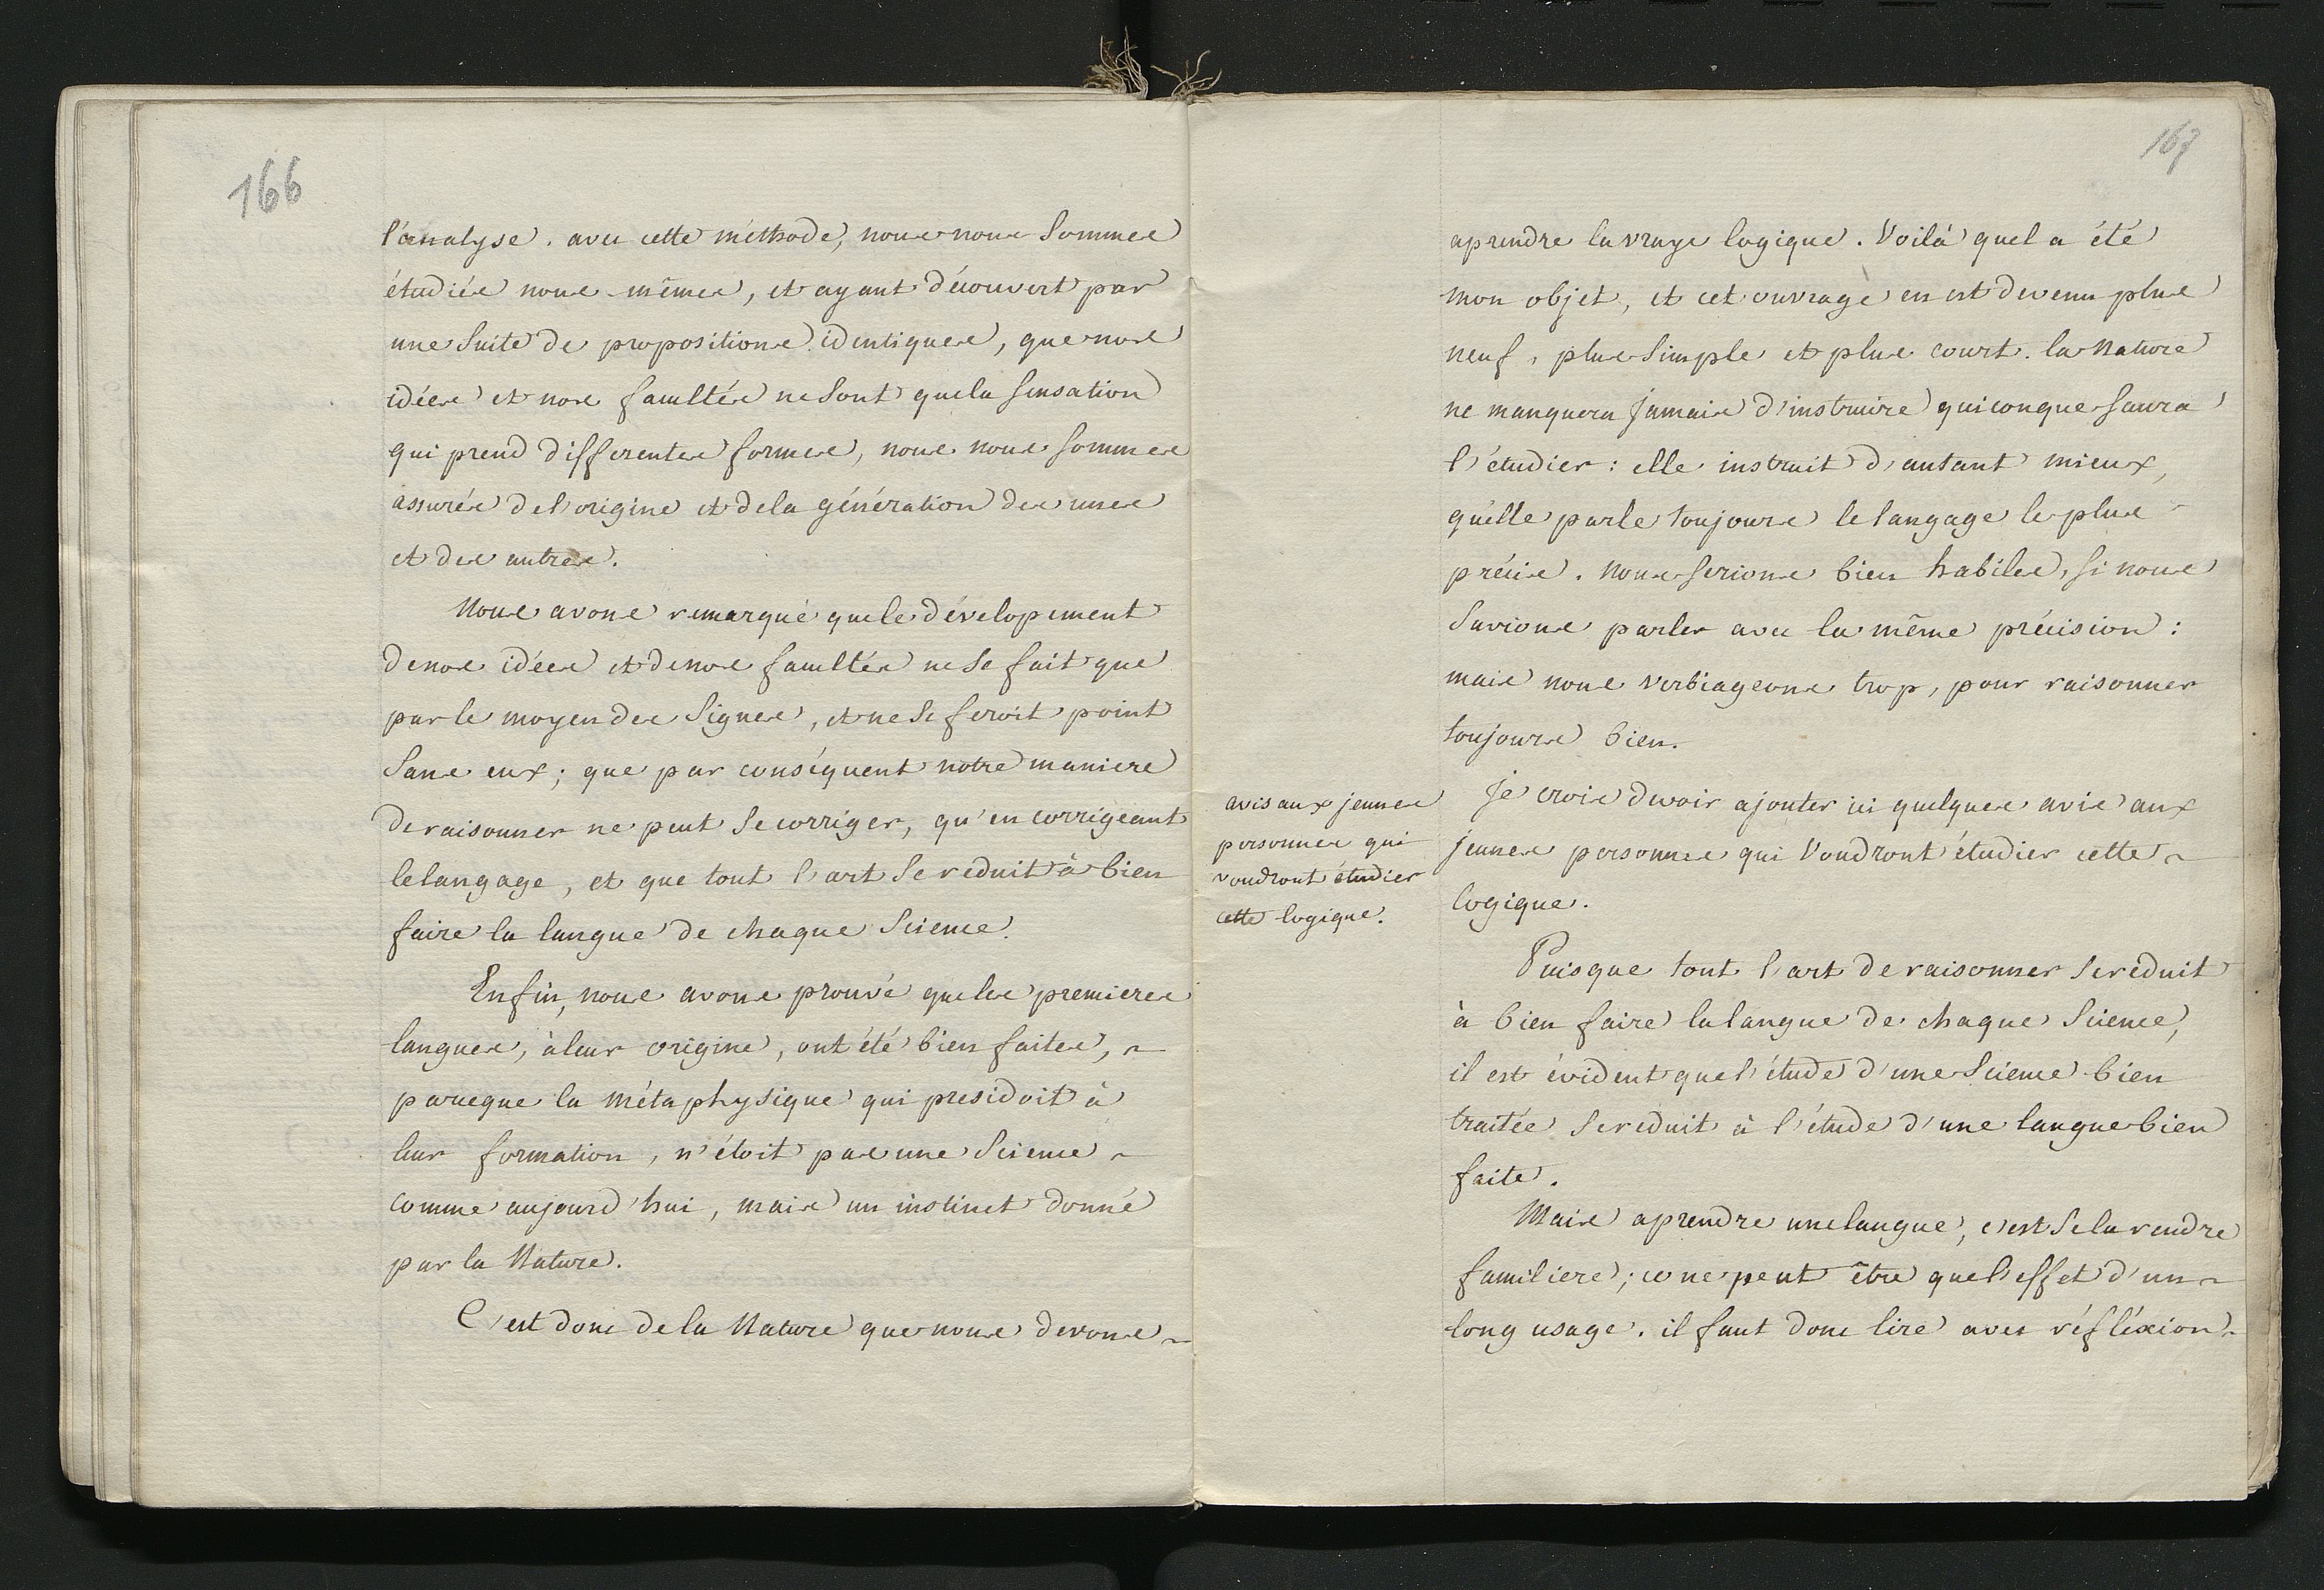 166
l'analyse. avec cette méthode, nous nous sommes
étudiés nous-mêmes, et ayant découvert par
une Suite de propositions identiques, que nos
idées et nos facultés ne sont que la sensation
qui prend differentes formes, nous nous sommes
assurés de l'origine et de la génération des unes
et des autres.
Nous avons remarqué que le dévelopement
de nos idées et de nos facultés ne se fait que
par le moyen des Signes, et ne se feroit point
Sans eux; que par conséquent notre maniere
de raisonner ne peut se corriger, qu'en corrigeant
le langage, et que tout l'art se réduit à bien
faire la langue de chaque Science.
Enfin, nous avons prouvé que les premieres
langues, à leur origine, ont été bien faites,
parceque la métaphysique qui presidoit à
leur formation, n'étoit pas une Science
comme aujourd'hui, mais un instinct donné
par la Nature.
C'est donc de la Nature que nous devons
167
aprendre la vraye logique. Voilà quel a été
mon objet, et cet ouvrage en est devenu plus
neuf, plus simple et plus court. la Nature
ne manquera jamais d'instruire quiconque saura
l'étudier: elle instruit d'autant mieux,
qu'elle parle toujours le langage le plus
précis. nous serions bien habiles, si nous
Savions parler avec la même précision:
mais nous verbiageons trop, pour raisonner
toujours bien.
avis aux jeunes
personnes qui
voudront étudier
cette logique.
Je crois devoir ajouter ici quelques avis aux
jeunes personnes qui voudront étudier cette
logique.
Puisque tout l'art de raisonner se réduit
à bien faire la langue de chaque Science,
il est évident que l'étude d'une Science bien
traitée se reduit à l'étude d'une langue bien
faite.
Mais aprendre une langue, c'est se la rendre
familiere; ce ne peut être que l'effet d'un
long usage. il faut donc lire avec réfléxion